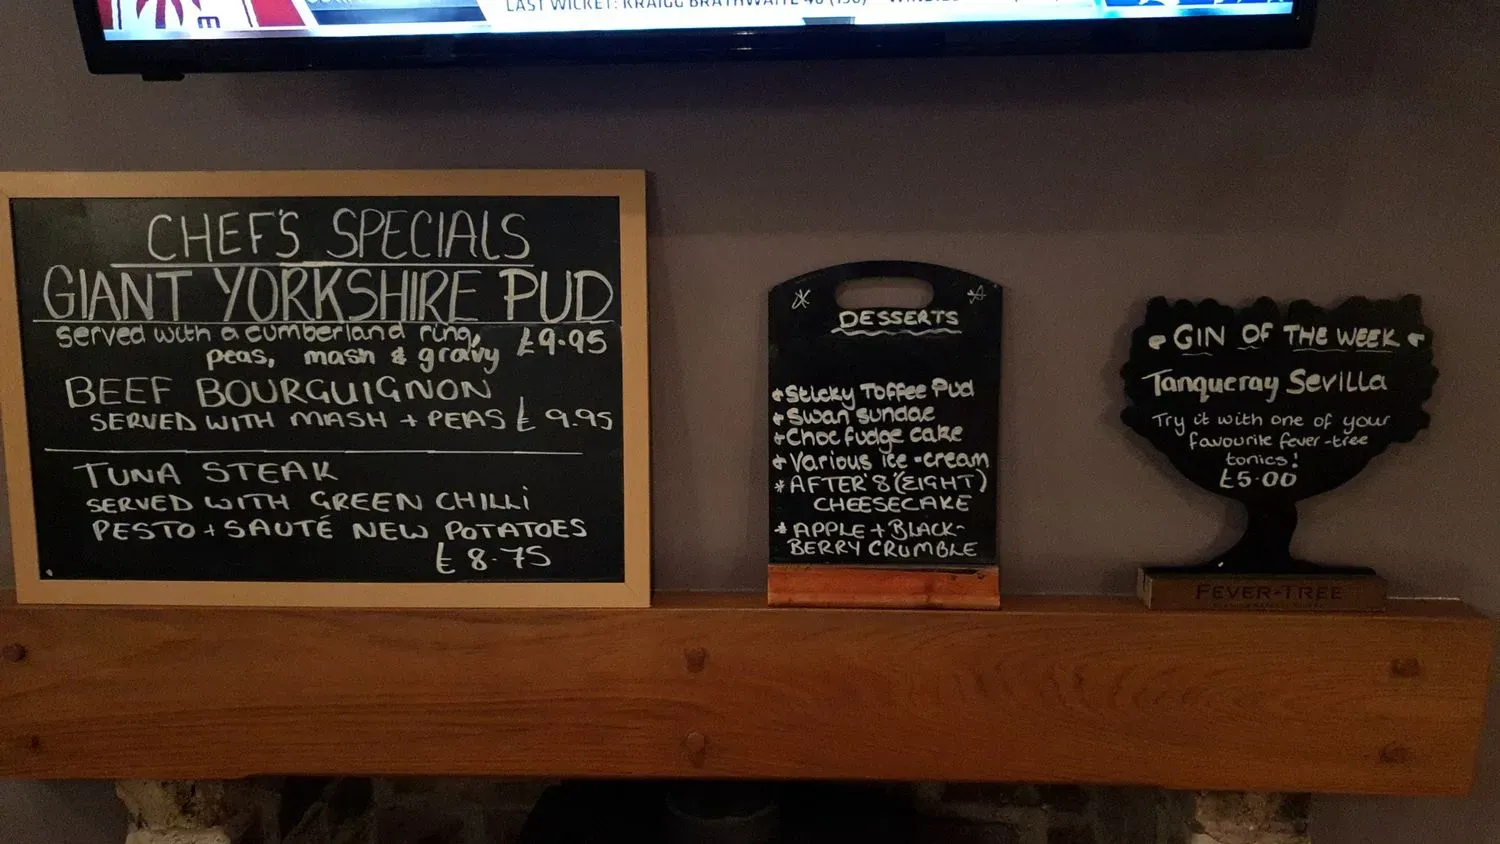 LAST WICKET: KRAIGG BRATHWAITE
CHEF'S SPECIALS
GIANT YORKSHIRE PUD
served with a cumberland ring,
peas, mash & gravy £9.95
BEEF BOURGUIGNON
SERVED WITH MASH + PEAS £9.95
TUNA STEAK
SERVED WITH GREEN CHILLI
PESTO + SAUTÉ NEW POTATOES
£8.75
DESSERTS
Sticky Toffee Pud
Swan Sundae
Choc fudge cake
Various ice-cream
* AFTER 8 (EIGHT)
CHEESECAKE
* APPLE + BLACK-
BERRY CRUMBLE
GIN OF THE WEEK
Tanqueray Sevilla
Try it with one of your
favourite fever-tree
tonics!
£5.00
FEVER-TREE